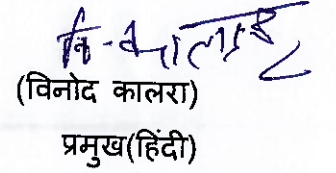 वि-कालरा
(विनोद कालरा)
प्रमुख(हिंदी)